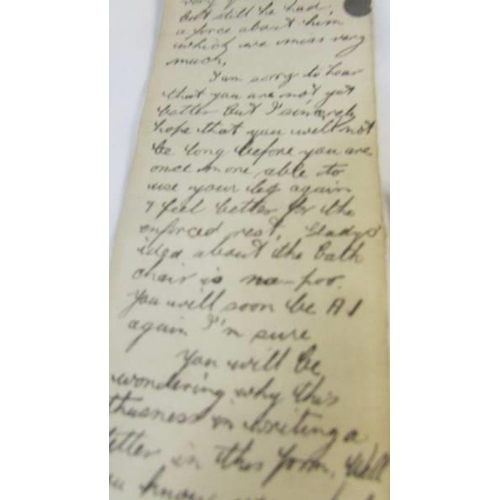 but still he had,
a force about him
which we miss very
much,
I am sorry to hear
that you are not yet
better but I sincerely
hope that you will not
be long before you are
once more able to
use your leg again
& feel better for the
enforced rest, Gladys'
idea about the Bath
chair is na-poo.
You will soon be A1
again I'm sure
You will be
wondering why this
in writing a
letter in this form. Well
you know